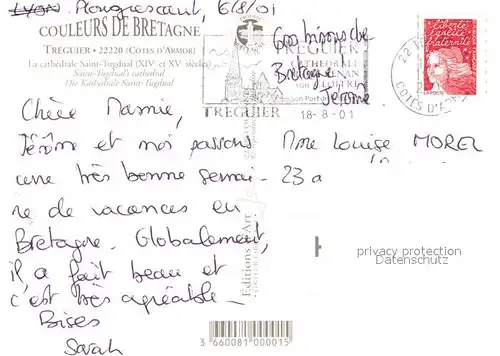 Lyon. Plougrescant, 6/8/01
COULEURS DE BRETAGNE
TREGUIER - 22220 (CÔTES D'ARMOR)
La cathédrale Saint-Tugdual (XIVe et XVe siècles)
Saint-Tugdual's cathedral
Die Kathedrale Saint-Tugdual
Chère Mamie,
Jérôme et moi passons
une très bonne semai-
ne de vacances en
Bretagne. Globalement,
il a fait beau et
c'est très agréable_
Bises
Sarah
Gros bisous de
Bretagne
Jérôme
TREGUIER
CATHEDRALE
TREGUIER
18-8-01
liberté
égalité
fraternité
LA POSTE
22
COTES D'
Mme Louise MOREL
23 a
Editions d'Art
privacy protection
Datenschutz
3 660081 000015